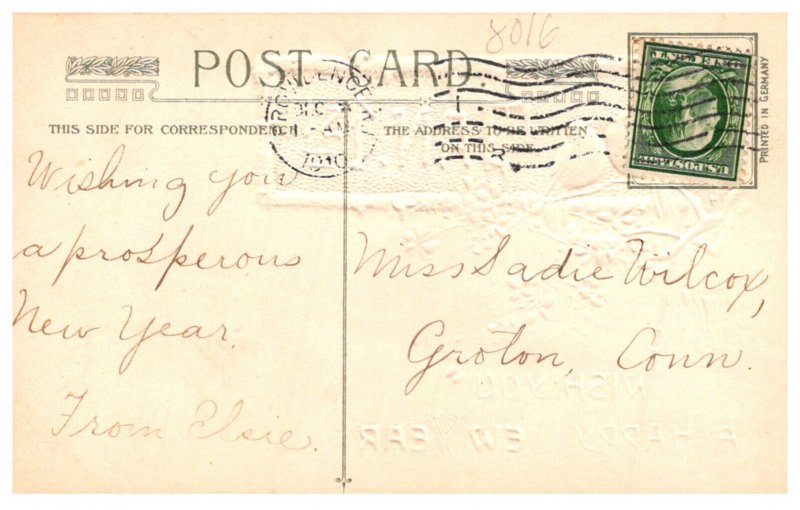 8016
POST CARD
THIS SIDE FOR CORRESPONDENCE
THE ADDRESS TO BE WRITTEN
ON THIS SIDE
PRINTED IN GERMANY
PROVIDENCE
DEC
AM
1910
U.S. POSTAGE
Wishing you
a prosperous
New Year.
From Elsie.
Miss Sadie Wilcox,
Groton, Conn.
WISH YOU
A HAPPY NEW YEAR